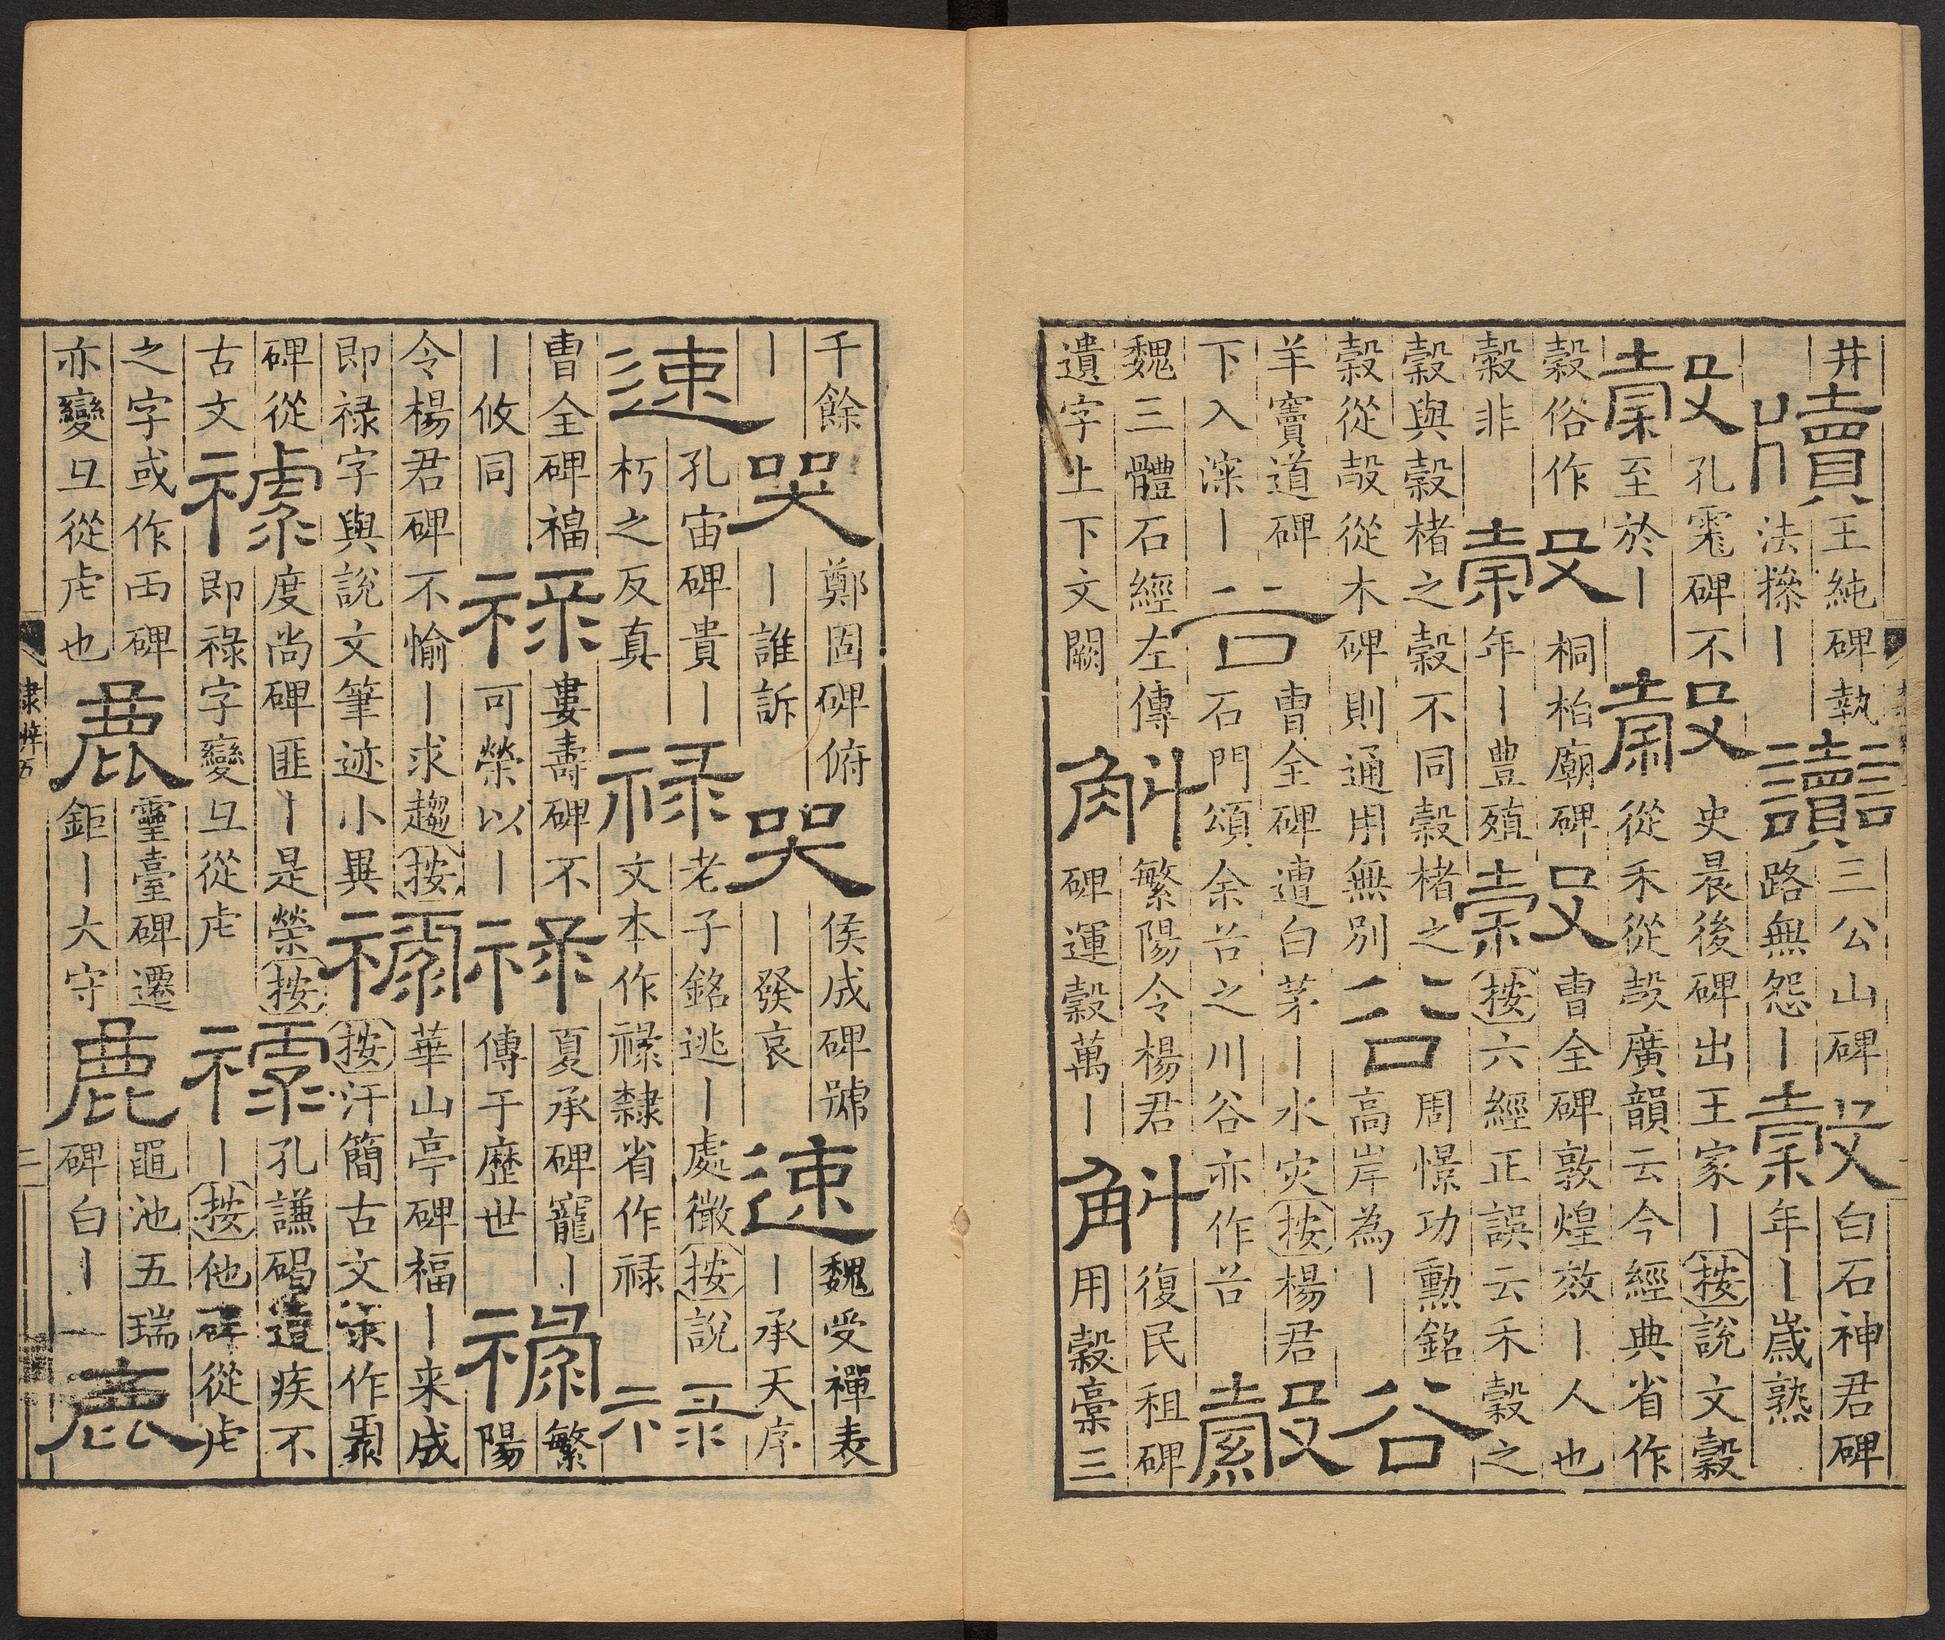 井牘王純碑執法㨰丨讟三公山碑路無怨丨穀白石神君碑年丨歲熟
穀孔碑不至於丨穀史晨後碑出王家丨按說文穀從禾從㱿廣韻云今經典省作
穀俗作穀非穀桐柏廟碑年丨豊殖穀曹全碑敦煌效丨人也按六經正誤云禾穀之
穀與榖楮之榖不同榖楮之榖從㱿從木碑則通用無別谷周憬功勳銘高岸為丨谷
羊竇道碑下入㴱丨谷曹全碑遭白茅丨水灾按楊君石門頌余谷之川谷亦作谷縠
魏三體石經左傳遺字上下文闕斛繁陽令楊君碑運穀萬丨斛復民租碑用穀稾三
千餘丨哭鄭固碑俯丨誰訴哭侯成碑號丨發哀速魏受禪表丨承天序
速孔宙碑貴丨朽之反真禄老子銘逃丨處微按說文本作祿隸省作禄禄
曹全碑福丨攸同禄婁壽碑不可榮以丨禄夏承碑寵丨傳于歷世禄繁陽
令楊君碑不愉丨求趨按即禄字與說文筆迹小異禄華山亭碑福丨来成按汗簡古文禄作
碑從古文禄度尚碑匪丨是榮按即祿字變彐從虍禄孔謙碣遘疾不丨按他碑從虍
之字或作襾碑亦變彐從虍也鹿靈臺碑遷鉅丨大守鹿黽池五瑞碑白丨鹿
隸辨五
二